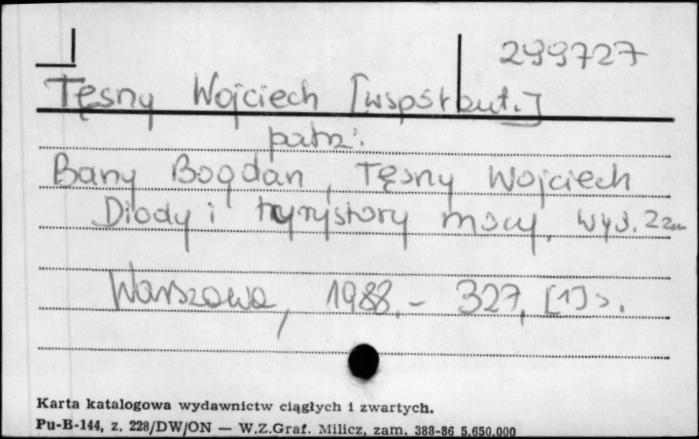 299727
Tęsny Wojciech [współaut.]
patrz:
Bany Bogdan, Tęsny Wojciech
Diody i tyrystory mocy. Wyd. 2 zm
Warszawa, 1988. - 327, [1] s.
Karta katalogowa wydawnictw ciągłych i zwartych.
Pu-B-144, z. 228/DW/ON — W.Z.Graf. Milicz, zam. 388-86 5.650.000